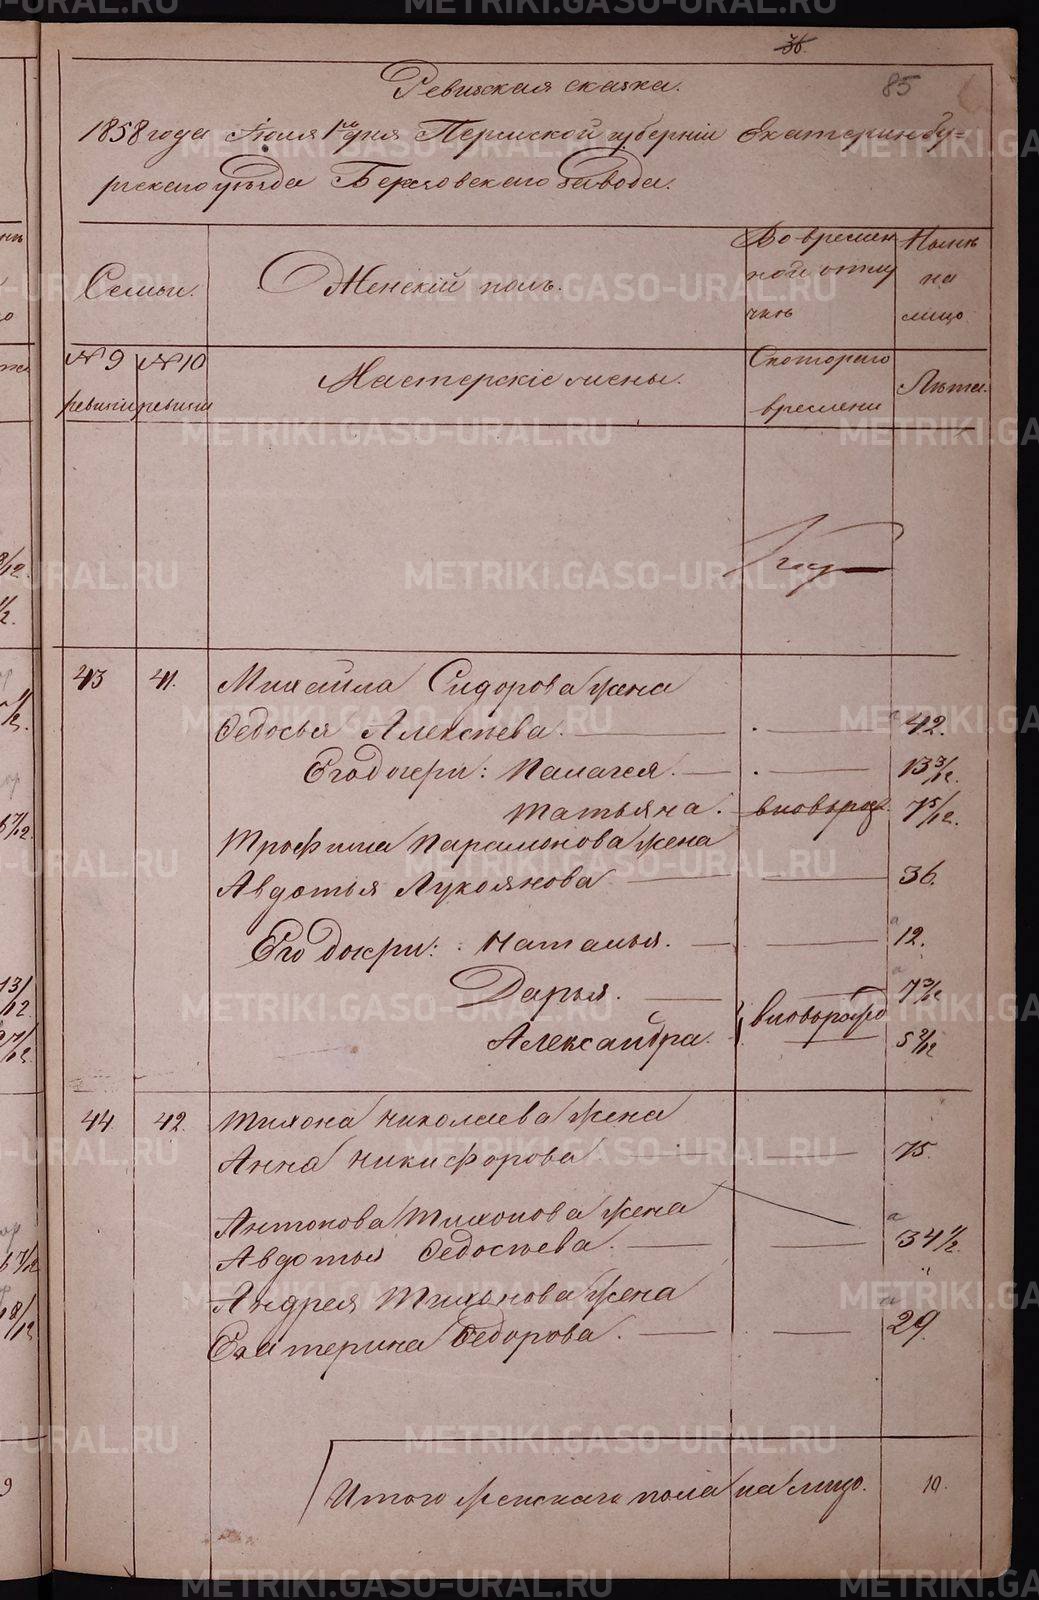 36
85
Ревижская сказка.
1858 года Iюля 1го дня Пермской губернiи Екатеринбу=
ргскаго уѣзда Березовскаго завода.
Семьи.
Женскiй полъ.
Во времен
ной отлу
чкѣ
Нынѣ
на
лицо
№ 9
ревизiи
№ 10
ревизiи
Мастерскiе жены.
Скотораго
времени
Лѣта.
43 41. Михайла Сидорова жена
Федосья Алексѣева. 42.
Его дочери: Палагея. 13 3/12.
Татьяна. вновьрож. 7 5/12.
Трофима Парамонова жена
Авдотья Лукоянова 36.
Его дочери: Наталья. 12.
Дарья. 7 3/12
Александра. вновьрожд 5 2/12
44. 42. Тихона Николаева жена
Анна Никифорова 75.
Антонова Тихонова жена
Авдотья Федосѣева. 34 1/2.
Андрея Тихонова жена
Екатерина Федорова. 29.
Итого женскаго пола на лицо. 10.
METRIKI.GASO-URAL.RU